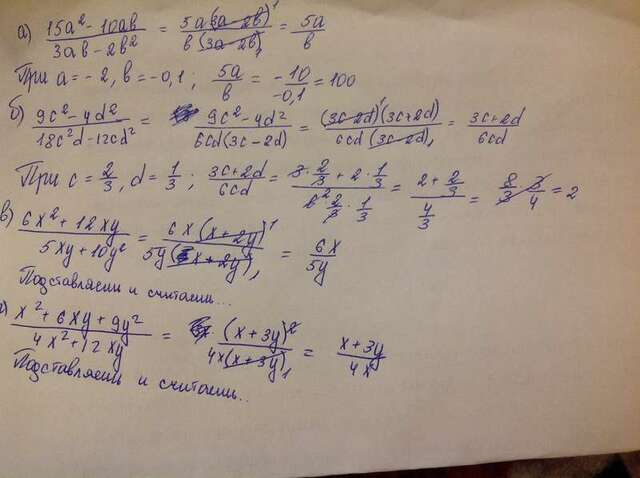 а) (15a² - 10ab)/(3ab - 2b²) = 5a(3a - 2b)¹/b(3a - 2b)₁ = 5a/b
При a = -2, b = -0,1 ; 5a/b = -10/-0,1 = 100
б) (9c² - 4d²)/(18c²d - 12cd²) = (9c² - 4d²)/6cd(3c - 2d) = (3c - 2d)¹(3c + 2d)/6cd(3c - 2d)₁ = (3c + 2d)/6cd
При c = 2/3, d = 1/3 ; (3c + 2d)/6cd = (3 · 2/3 + 2 · 1/3)/(6² · 2/3 · 1/3) = (2 + 2/3)/(4/3) = 8/3 · 3/4 = 2
в) (6x² + 12xy)/(5xy + 10y²) = 6x(x + 2y)¹/5y(x + 2y)₁ = 6x/5y
Подставляем и считаем...
г) (x² + 6xy + 9y²)/(4x² + 12xy) = (x + 3y)²/4x(x + 3y)₁ = (x + 3y)/4x
Подставляем и считаем..